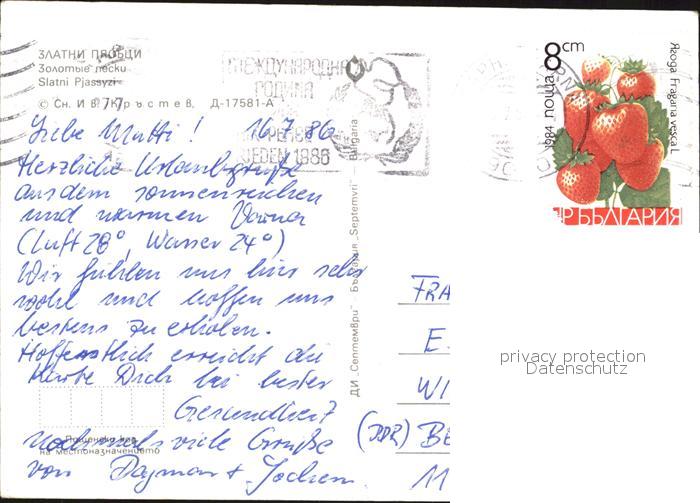 ЗЛАТНИ ПЯСЪЦИ
Золотые пески
Slatni Pjassyzi
© Сн. И в. Кръстев, Д-17581-А
МЕЖДУНАРОДНА
ГОДИНА
1986
8 cm
поща
1984
Ягода Fragaria vesca L
НР БЪЛГАРИЯ
Liebe Mutti! 16.7.86
Herzliche Urlaubsgrüße
aus dem sonnenreichen
und warmen Varna
(Luft 28°, Wasser 24°)
Wir fühlen uns hier sehr
wohl und hoffen uns
bestens zu erholen.
Hoffentlich erreicht die
Karte Dich bei bester
Gesundheit
Nochmals viele Grüße
von Dagmar + Jochen.
Пощенски код
на местоназначението
ДИ „Септември" - България „Septemvri" - Bulgaria
FRA
E.
WI
(DDR) BE
11
privacy protection
Datenschutz